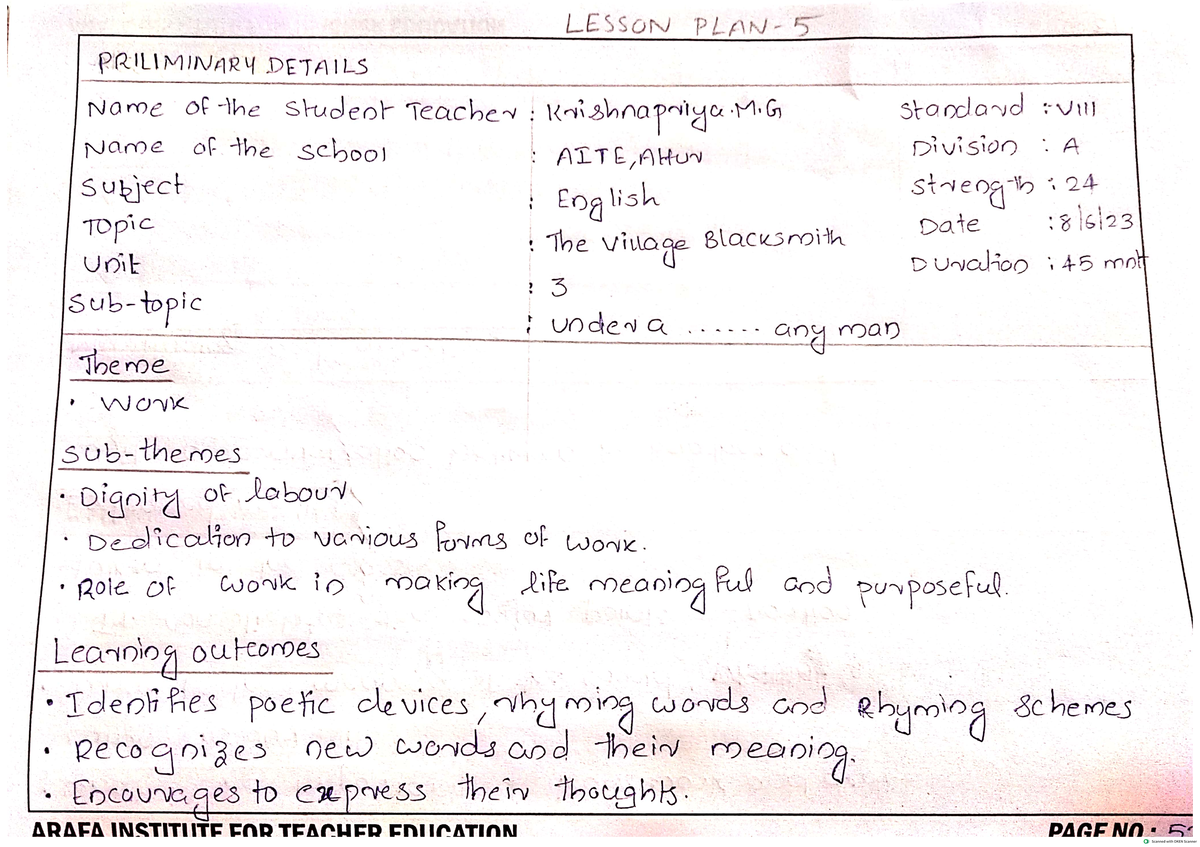 LESSON PLAN-5
PRILIMINARY DETAILS
Name of the Student Teacher : Krishnapriya.M.G Standard : VIII
Name of the School : AITE, Attur Division : A
Subject : English Strength : 24
Topic : The Village Blacksmith Date : 8/6/23
Unit : 3 Duration : 45 mnt
Sub-topic : Under a ...... any man
Theme
• Work
Sub-themes
• Dignity of labour
• Dedication to various forms of work.
• Role of work in making life meaningful and purposeful.
Learning outcomes
• Identifies poetic devices, rhyming words and Rhyming Schemes
• Recognizes new words and their meaning.
• Encourages to express their thoughts.
ARAFA INSTITUTE FOR TEACHER EDUCATION PAGE NO :
Scanned with OKEN Scanner